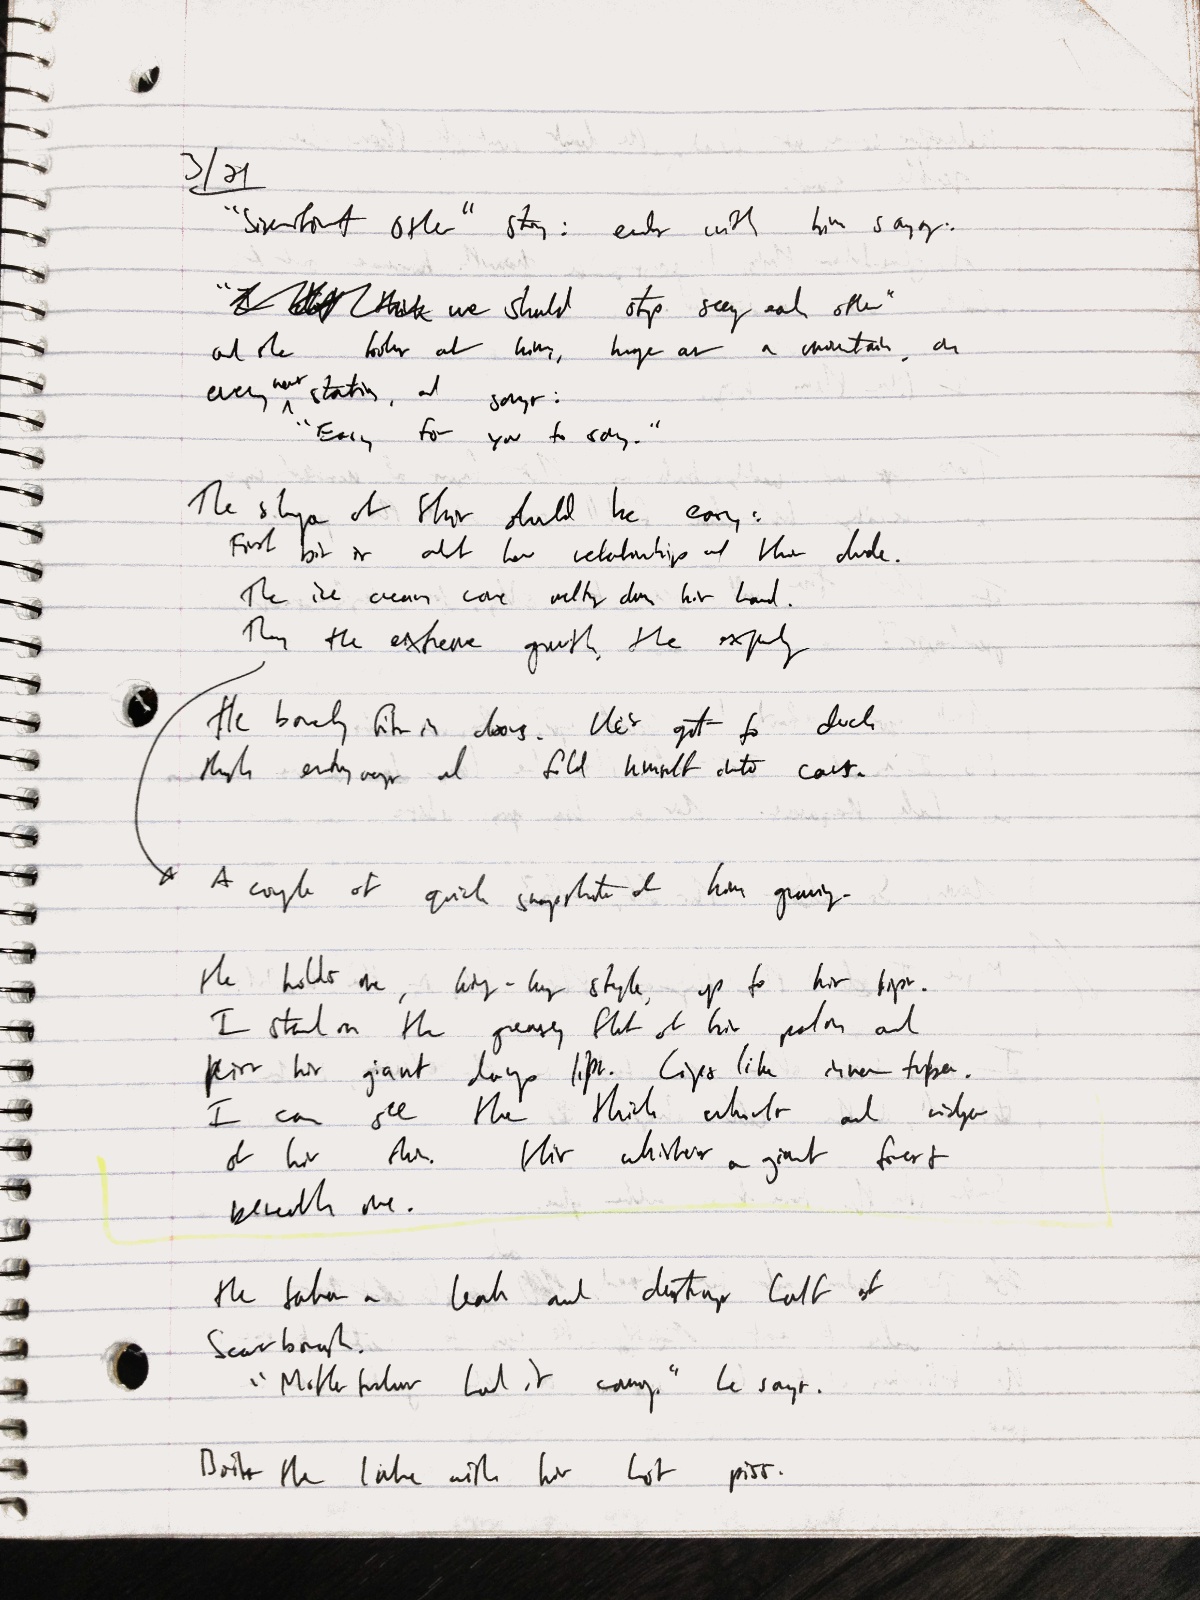 3/21
"Significant Other" story: ends with him saying:
"I don't think we should stop seeing each other"
and she looks at him, huge as a mountain, on
every news station, and says:
"Easy for you to say."
The shape of this should be easy:
First bit is abt her relationships and this dude.
The ice cream cone melting down his hand.
Then the extreme growth, the
He barely fits in doors. He's got to duck
through entryways and fold himself into cars.
A couple of quick snapshots of him growing.
He holds me, king-kong style, up to his lips.
I stand on the greasy flat of his palm and
kiss his giant lips. Lips like inner tubes.
I can see the thick whorls and ridges
of his skin. His whiskers a giant forest
beneath me.
He takes a leak and destroys half of
Scarborough.
"Motherfucker had it coming." he says.
Boils the lake with his hot piss.